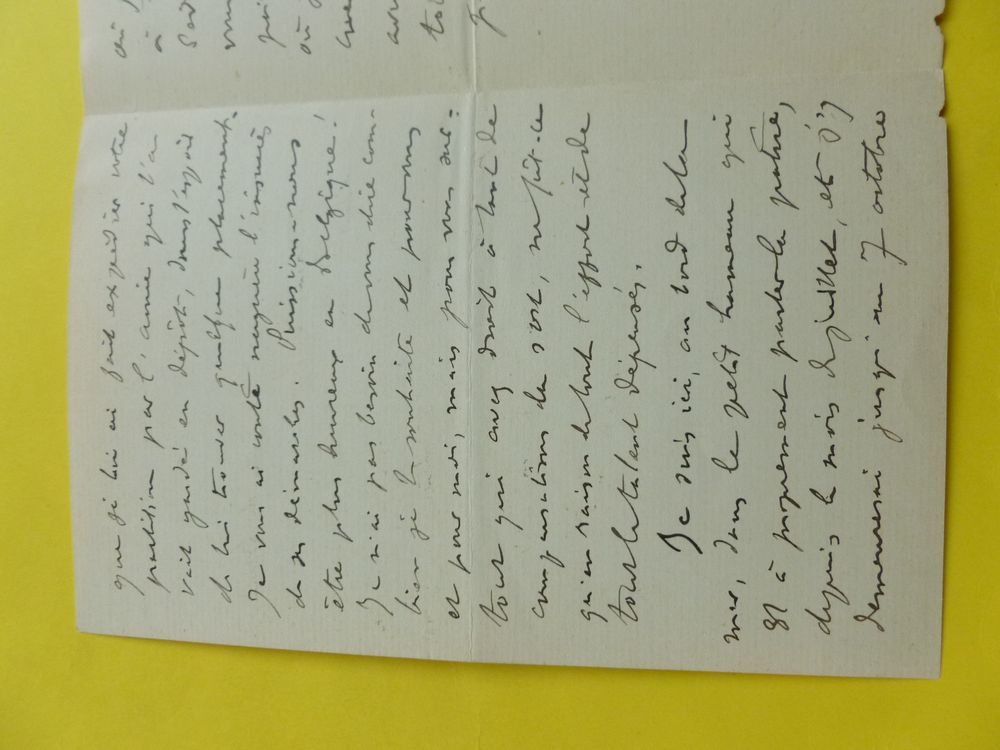 que je lui ai fait expédier votre
partition par l'amie qui l'a-
vait gardée en dépôt, dans l'espoir
de lui trouver quelque placement.
Je vous ai conté naguère l'insuccès
de ses démarches. Puissions-nous
être plus heureux en Belgique!
Je n'ai pas besoin de vous dire com-
bien je le souhaite et pour vous
et pour moi, mais pour vous sur-
tout qui avez droit à tant de
compensations du sort, ne fût-ce
qu'en raison de tout l'effort et de
tout le talent dépensés.
Je suis ici, au bord de la
mer, dans le petit hameau qui
est à proprement parler la patrie,
depuis le mois de juillet, et j'y
demeurerai jusqu'au 7 octobre